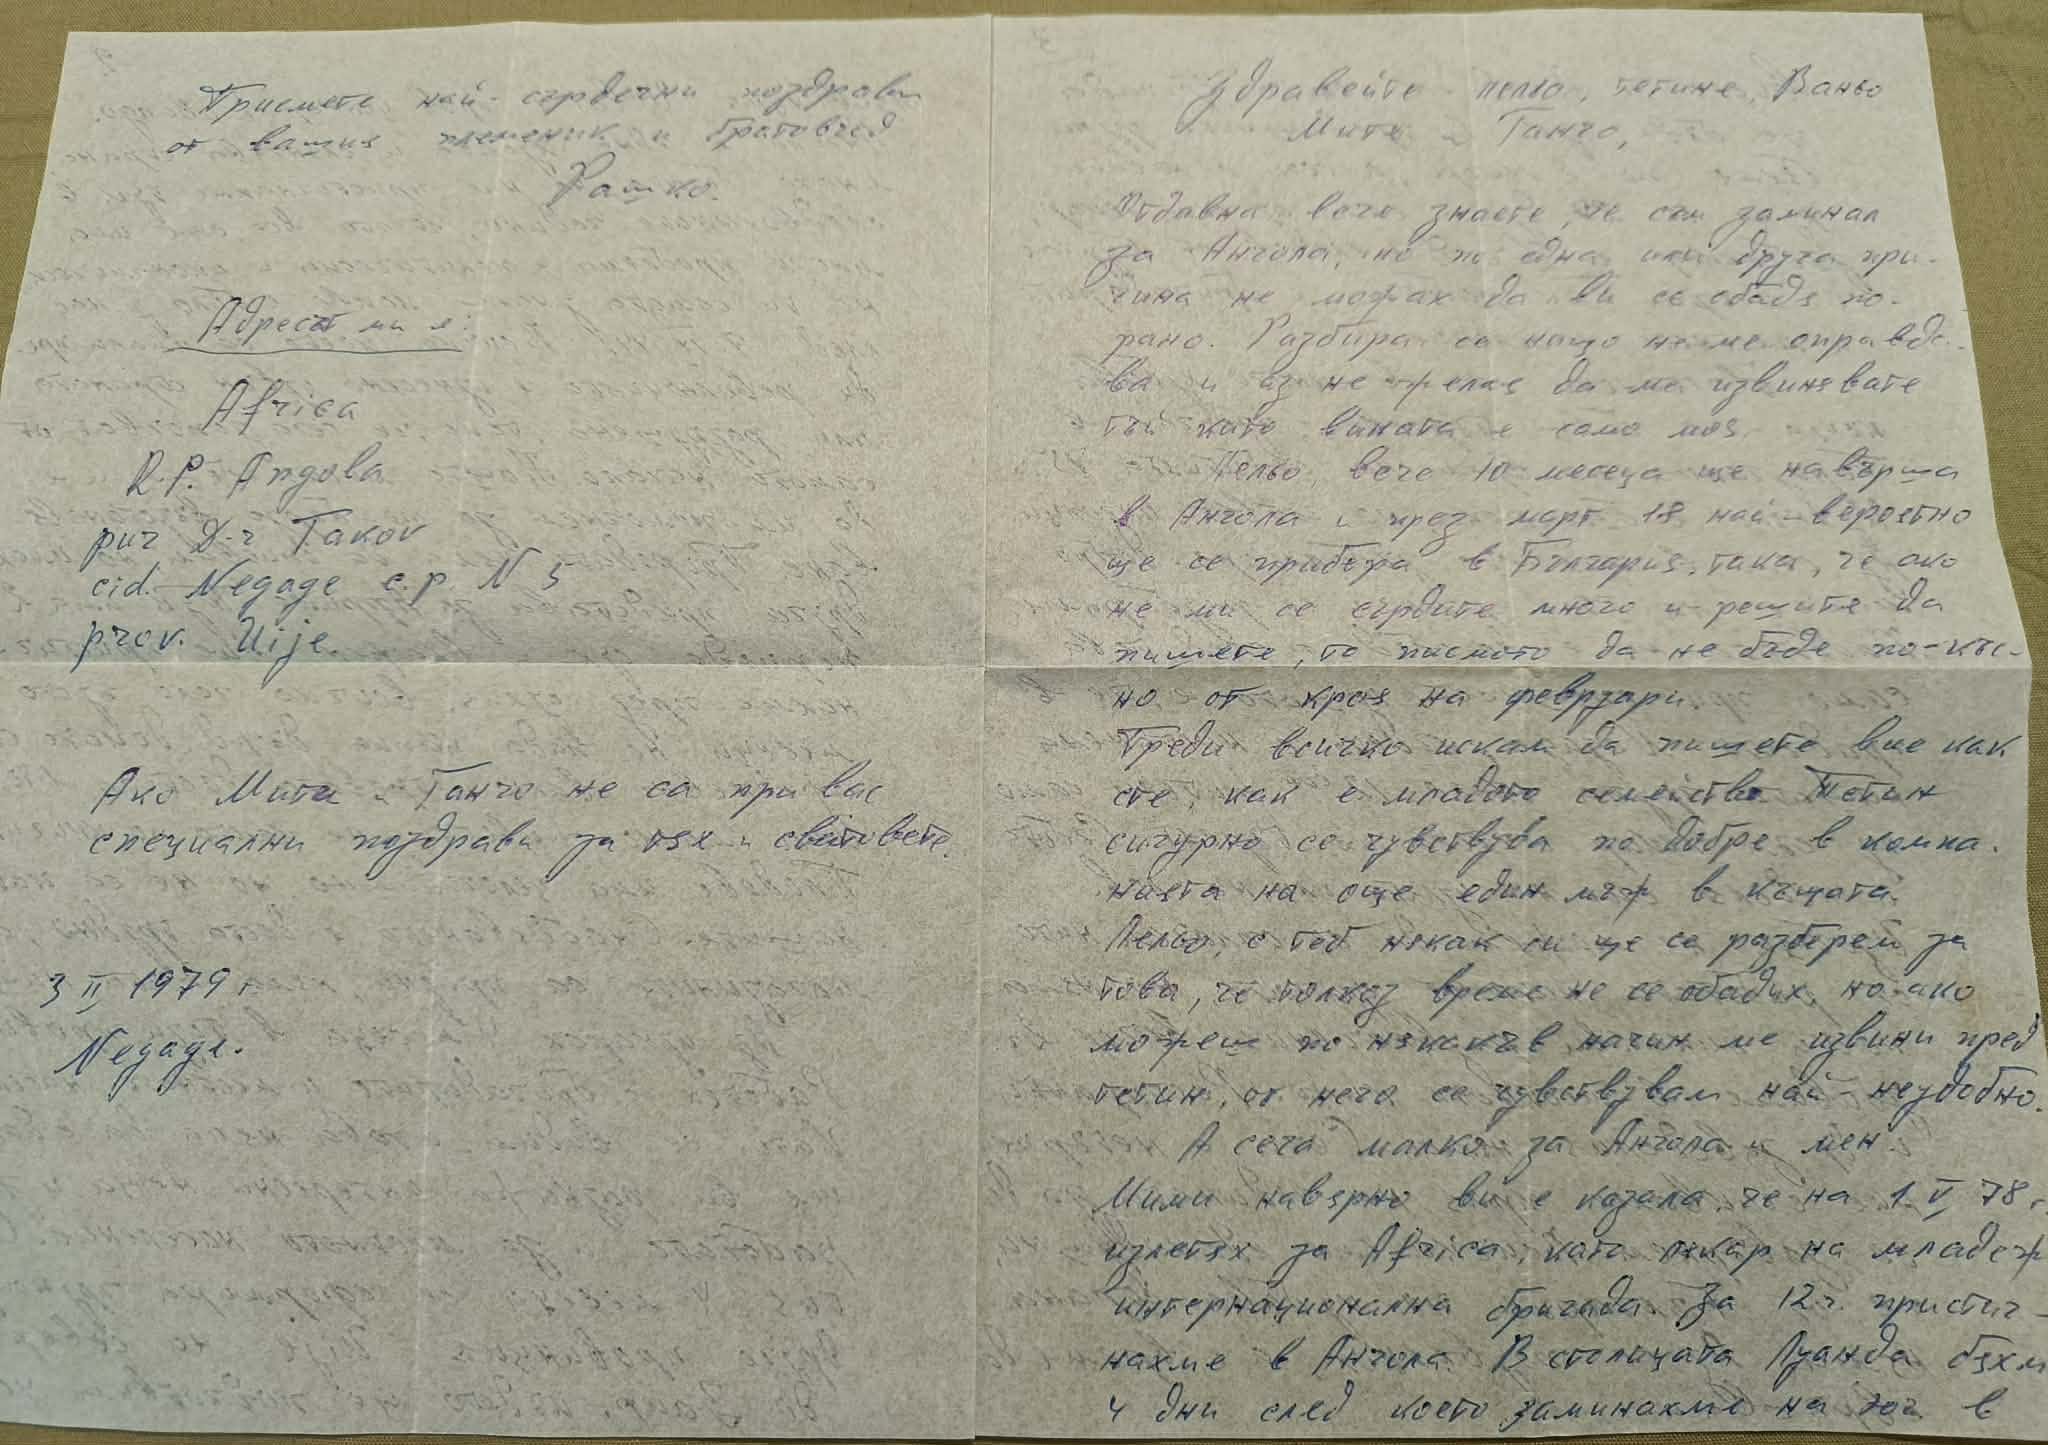 Приемете най-сърдечни поздрави
от вашия племеник и братовчед
Рашко.
Адресът ми е:
Africa
R.P. Angola
Takov
cid. Negage c.p. N 5
prov. Uije.
Ако Мити и Ганчо не са при вас
специални поздрави за тях и сватовете.
3 II 1979 г
Negage.
Здравейте лельо, тетине, Ваньо
Мите и Ганчо,
Отдавна вече знаете, че съм заминал
за Ангола, но по една или друга при-
чина не можах да ви се обадя по-
рано. Разбира се нищо не ме оправда-
ва и аз не желая да ме извинявате
тъй като вината е само моя.
Лельо, вече 10 месеца ще навърша
в Ангола и през март 18 най-вероятно
ще се прибера в България, така, че ако
не ми се сърдите много и решите да
пишете, то писмото да не бъде по-къс-
но от края на февруари.
Преди всичко искам да пишете вие как
сте, как е младото семейство. Тетин
сигурно се чувствува по добре в компа-
нията на още един мъж в къщата.
Лельо, с теб някак си ще се разберем за
това, че толкоз време не се обадих, но ако
можеш по някакъв начин ме извини пред
тетин, от него се чувствувам най-неудобно.
А сега малко за Ангола и мен.
Мими навярно ви е казала, че на 1 V 78 г.
излетях за Africa, като лекар на младеж
интернационална бригада. За 12 ч. пристиг-
нахме в Ангола. В столицата Луанда бяхм
4 дни след което заминахме на юг в